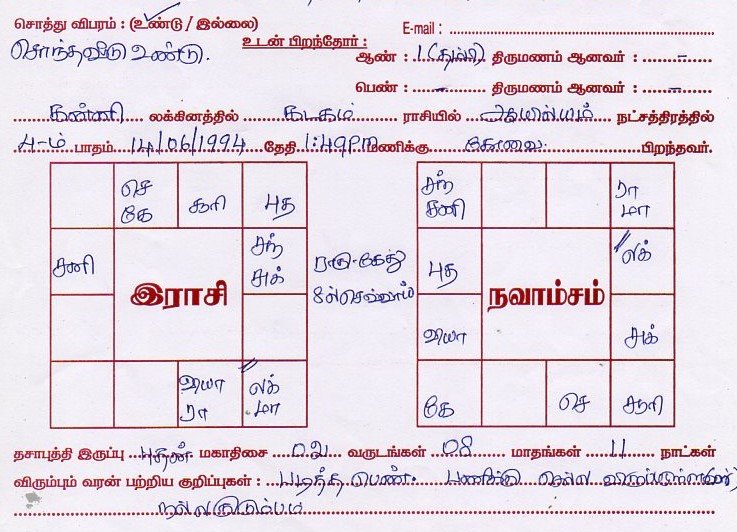 சொத்து விபரம் : (உண்டு / இல்லை) E-mail :
சொந்தவீடு உண்டு. உடன் பிறந்தோர் : ஆண் : 1 (தம்பி) திருமணம் ஆனவர் : –
பெண் : – திருமணம் ஆனவர் : –
கன்னி லக்கினத்தில் கடகம் ராசியில் ஆயில்யம் நட்சத்திரத்தில்
4-ம் பாதம் 14/06/1994 தேதி 1:49PM மணிக்கு கோவை பிறந்தவர்.
செ
கே
சூரி
புத
சனி
சந்
சுக்
இராசி
வியா
ரா
லக்
மா
ராகு-கேது
8ல் செவ்வாய்
சந்
சனி
ரா
மா
புத
லக்
நவாம்சம்
வியா
சுக்
கே
செ
சூரி
தசாபுத்தி இருப்பு புதன் மகாதிசை 02 வருடங்கள் 08 மாதங்கள் 11 நாட்கள்
விரும்பும் வரன் பற்றிய குறிப்புகள் : படித்த பெண். பணிக்கு செல்ல
நல்லகுடும்பம்